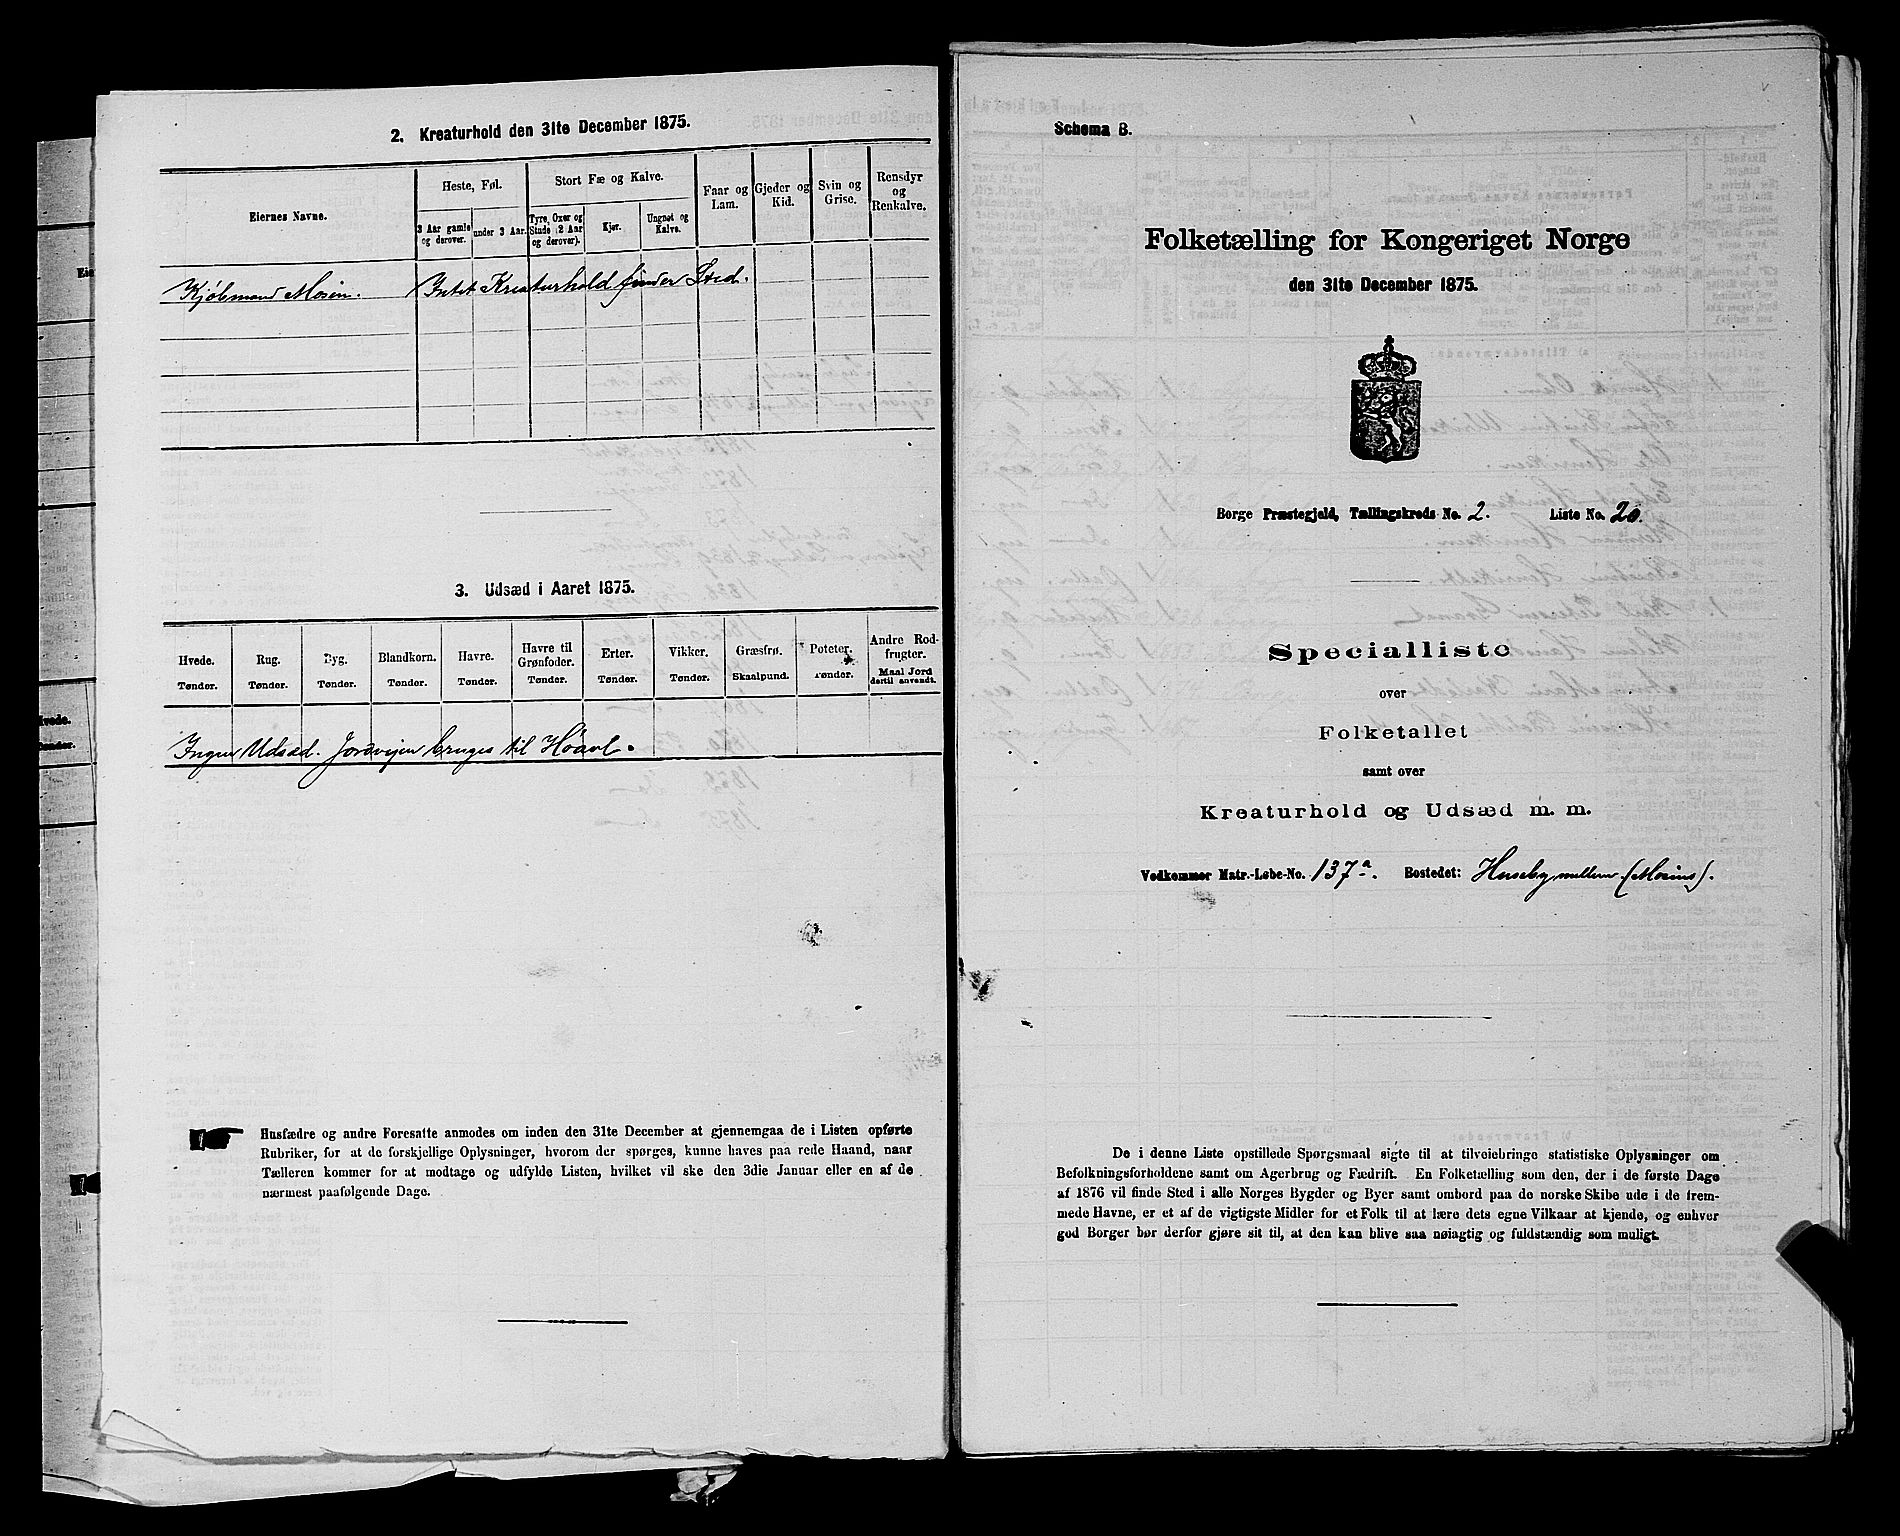 2. Kreaturhold den 31te December 1875.
Eiernes Navne.
Heste, Føl.
Stort Fæ og Kalve.
Faar og Lam.
Gjeder og Kid.
Svin og Grise.
Rensdyr og Renkalve.
3 Aar gamle og derover.
under 3 Aar.
Tyre, Oxer og Stude (2 Aar og derover).
Kjør.
Ungnøt og Kalve.
Kjøbmand Mosin. Intet Kreaturhold finder Sted.
3. Udsæd i Aaret 1875.
Hvede. Rug. Byg. Blandkorn. Havre. Havre til Grønfoder. Erter. Vikker. Græsfrø. Poteter. Andre Rodfrugter.
Tønder. Tønder. Tønder. Tønder. Tønder. Tønder. Tønder. Tønder. Skaalpund. Tønder. Maal Jord dertil anvendt.
Ingen Udsæd. Jordvejen bruges til Høavl.
Husfædre og andre Foresatte anmodes om inden den 31te December at gjennemgaa de i Listen opførte
Rubriker, for at de forskjellige Oplysninger, hvorom der spørges, kunne haves paa rede Haand, naar
Tælleren kommer for at modtage og udfylde Listen, hvilket vil ske den 3die Januar eller en af de
nærmest paafølgende Dage.
Schema B.
Folketælling for Kongeriget Norge
den 31te December 1875.
Borge Præstegjeld, Tællingskreds No. 2. Liste No. 20.
Specialliste
over
Folketallet
samt over
Kreaturhold og Udsæd m. m.
Vedkommer Matr.-Løbe-No. 137a. Bostedet: Husebymellem (Mosins).
De i denne Liste opstillede Spørgsmaal sigte til at tilveiebringe statistiske Oplysninger om
Befolkningsforholdene samt om Agerbrug og Fædrift. En Folketælling som den, der i de første Dage
af 1876 vil finde Sted i alle Norges Bygder og Byer samt ombord paa de norske Skibe ude i de frem-
mede Havne, er et af de vigtigste Midler for et Folk til at lære dets egne Vilkaar at kjende, og enhver
god Borger bør derfor gjøre sit til, at den kan blive saa nøiagtig og fuldstændig som muligt.